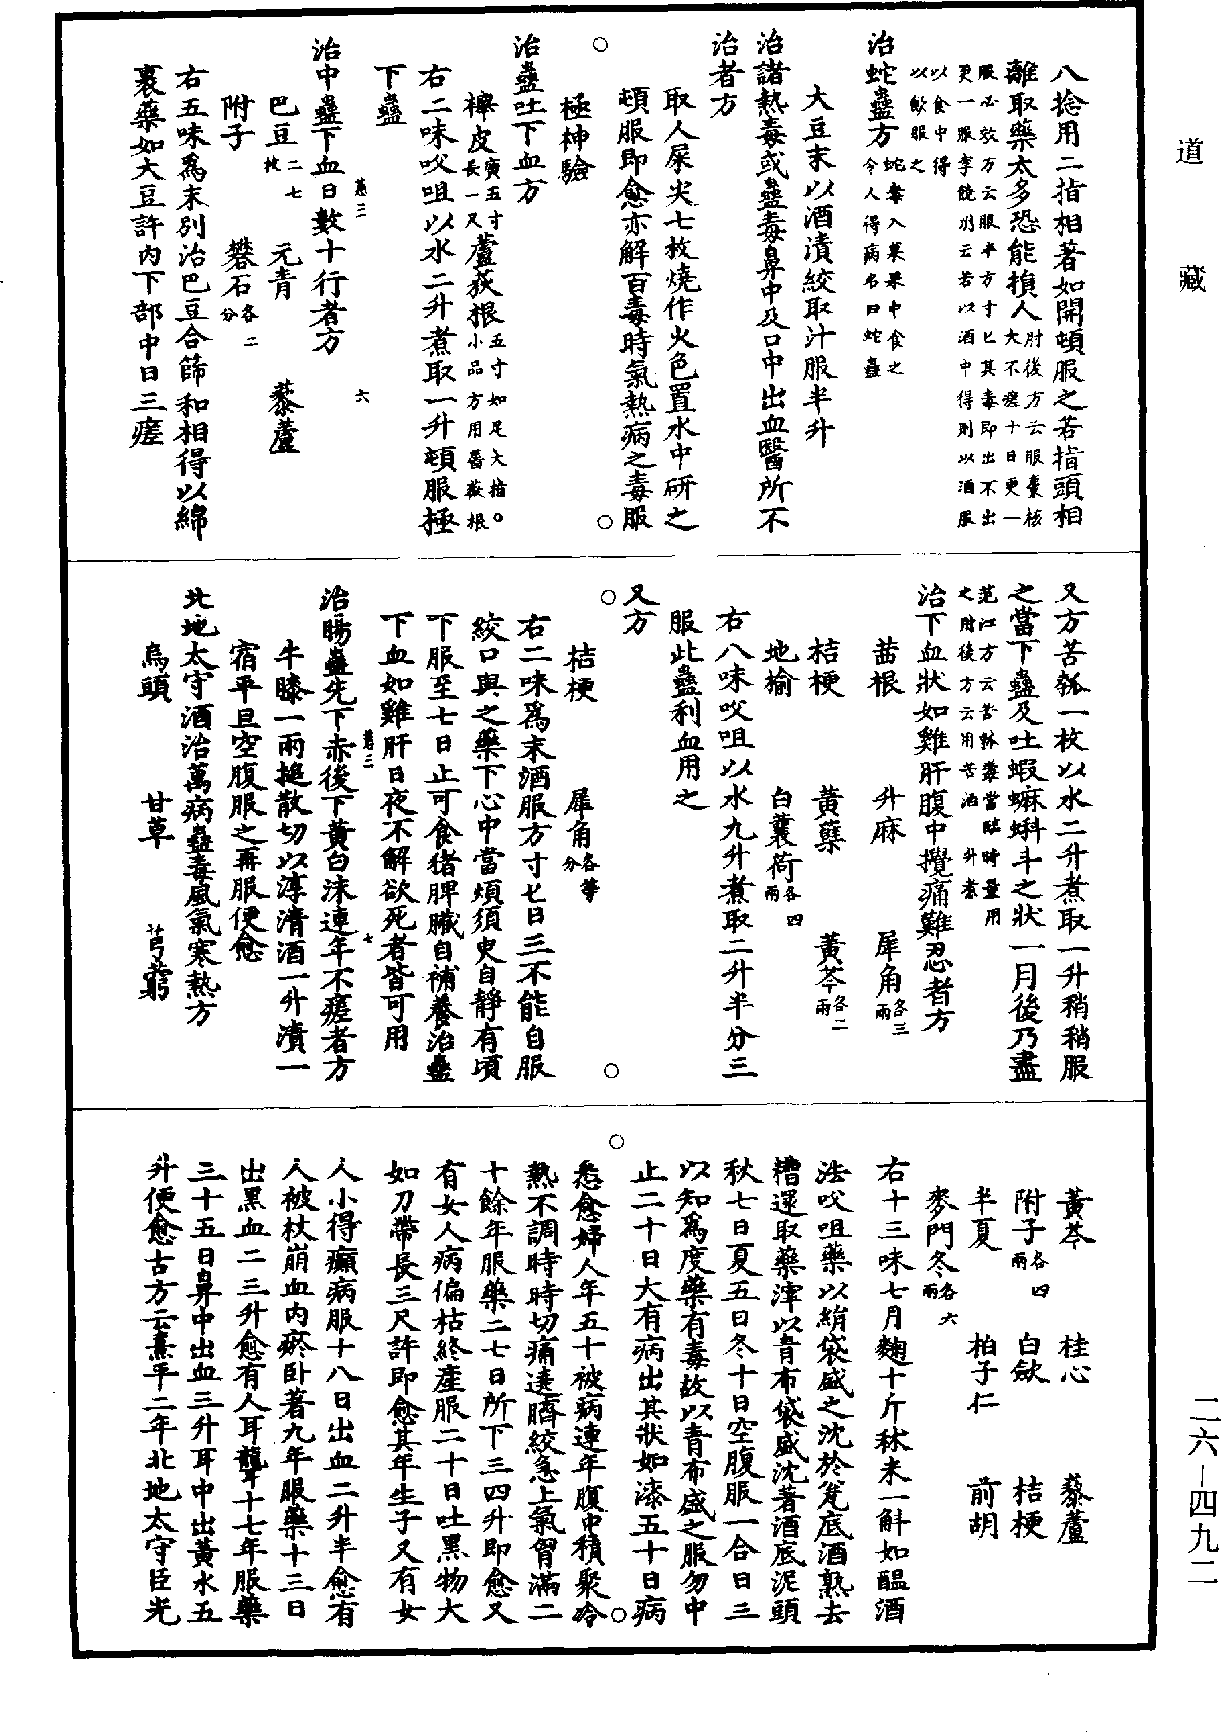 道藏
八捻用二指相著如開頓服之若指頭相
離取藥太多恐能損人肘後方云服棗核大不瘥十日更一
服必效方云服半方寸匕其毒即出不出
更一服李饒州云若以酒中得則以酒服
以食中得
以飲服之
治蛇蠱方蛇毒入菜果中食之令人得病名曰蛇蠱
大豆末以酒漬絞取汁服半升
治諸熱毒或蠱毒鼻中及口中出血醫所不
治者方
取人屎尖七枚燒作火色置水中研之
頓服即愈亦解百毒時氣熱病之毒服
極神驗
治蠱吐下血方
櫸皮廣五寸長一尺蘆荻根五寸如足大指○小品方用薔薇根
右二味㕮咀以水二升煮取一升頓服極
下蠱
治中蠱下血日數十行者方
巴豆二七枚 元青 藜蘆
附子 礬石各二分
右五味為末別治巴豆合篩和相得以綿
裹藥如大豆許內下部中日三瘥
又方苦瓠一枚以水二升煮取一升稍稍服
之當下蠱及吐蝦蟆蝌斗之狀一月後乃盡
范汪方云苦瓠毒當臨時量用
之肘後方云用苦酒一升煮
治下血狀如雞肝腹中攪痛難忍者方
茜根 升麻 犀角各三兩
桔梗 黃蘗 黃芩各二兩
地榆 白蘘荷各四兩
右八味㕮咀以水九升煮取二升半分三
服此蠱利血用之
又方
桔梗 犀角各等分
右二味為末酒服方寸匕日三不能自服
絞口與之藥下心中當煩須臾自靜有頃
下服至七日止可食猪脾臟自補養治蠱
下血如雞肝日夜不解欲死者皆可用
治腸蠱先下赤後下黃白沫連年不瘥者方
牛膝一兩搥散切以淳清酒一升漬一
宿平旦空腹服之再服便愈
北地太守酒治萬病蠱毒風氣寒熱方
烏頭 甘草 芎藭
黃芩 桂心 藜蘆
附子各四兩 白斂 桔梗
半夏 柏子仁 前胡
麥門冬各六兩
右十三味七月麴十斤秫米一斛如醞酒
法㕮咀藥以絹袋盛之沈於瓮底酒熟去
糟還取藥滓以青布袋盛沈著酒底泥頭
秋七日夏五日冬十日空腹服一合日三
以知為度藥有毒故以青布盛之服勿中
止二十日大有病出其狀如漆五十日病
悉愈婦人年五十被病連年腹中積聚冷
熱不調時時切痛遶臍絞急上氣胷滿二
十餘年服藥二七日所下三四升即愈又
有女人病偏枯終產服二十日吐黑物大
如刀帶長三尺許即愈其年生子又有女
人小得癲病服十八日出血二升半愈有
人被杖崩血內瘀臥著九年服藥十三日
出黑血二三升愈有人耳聾十七年服藥
三十五日鼻中出血三升耳中出黃水五
升便愈古方云熹平二年北地太守臣光
二六—四九二